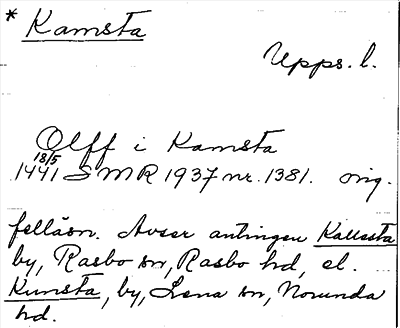 * Kamsta
Upps. l.
Olff i Kamsta
18/5
1441 SMR 1937 nr. 1381. orig.
felläsn. Avser antingen Kallsta
by, Rasbo sn, Rasbo hd, el.
Kumsta, by, Lena sn, Norunda
hd.